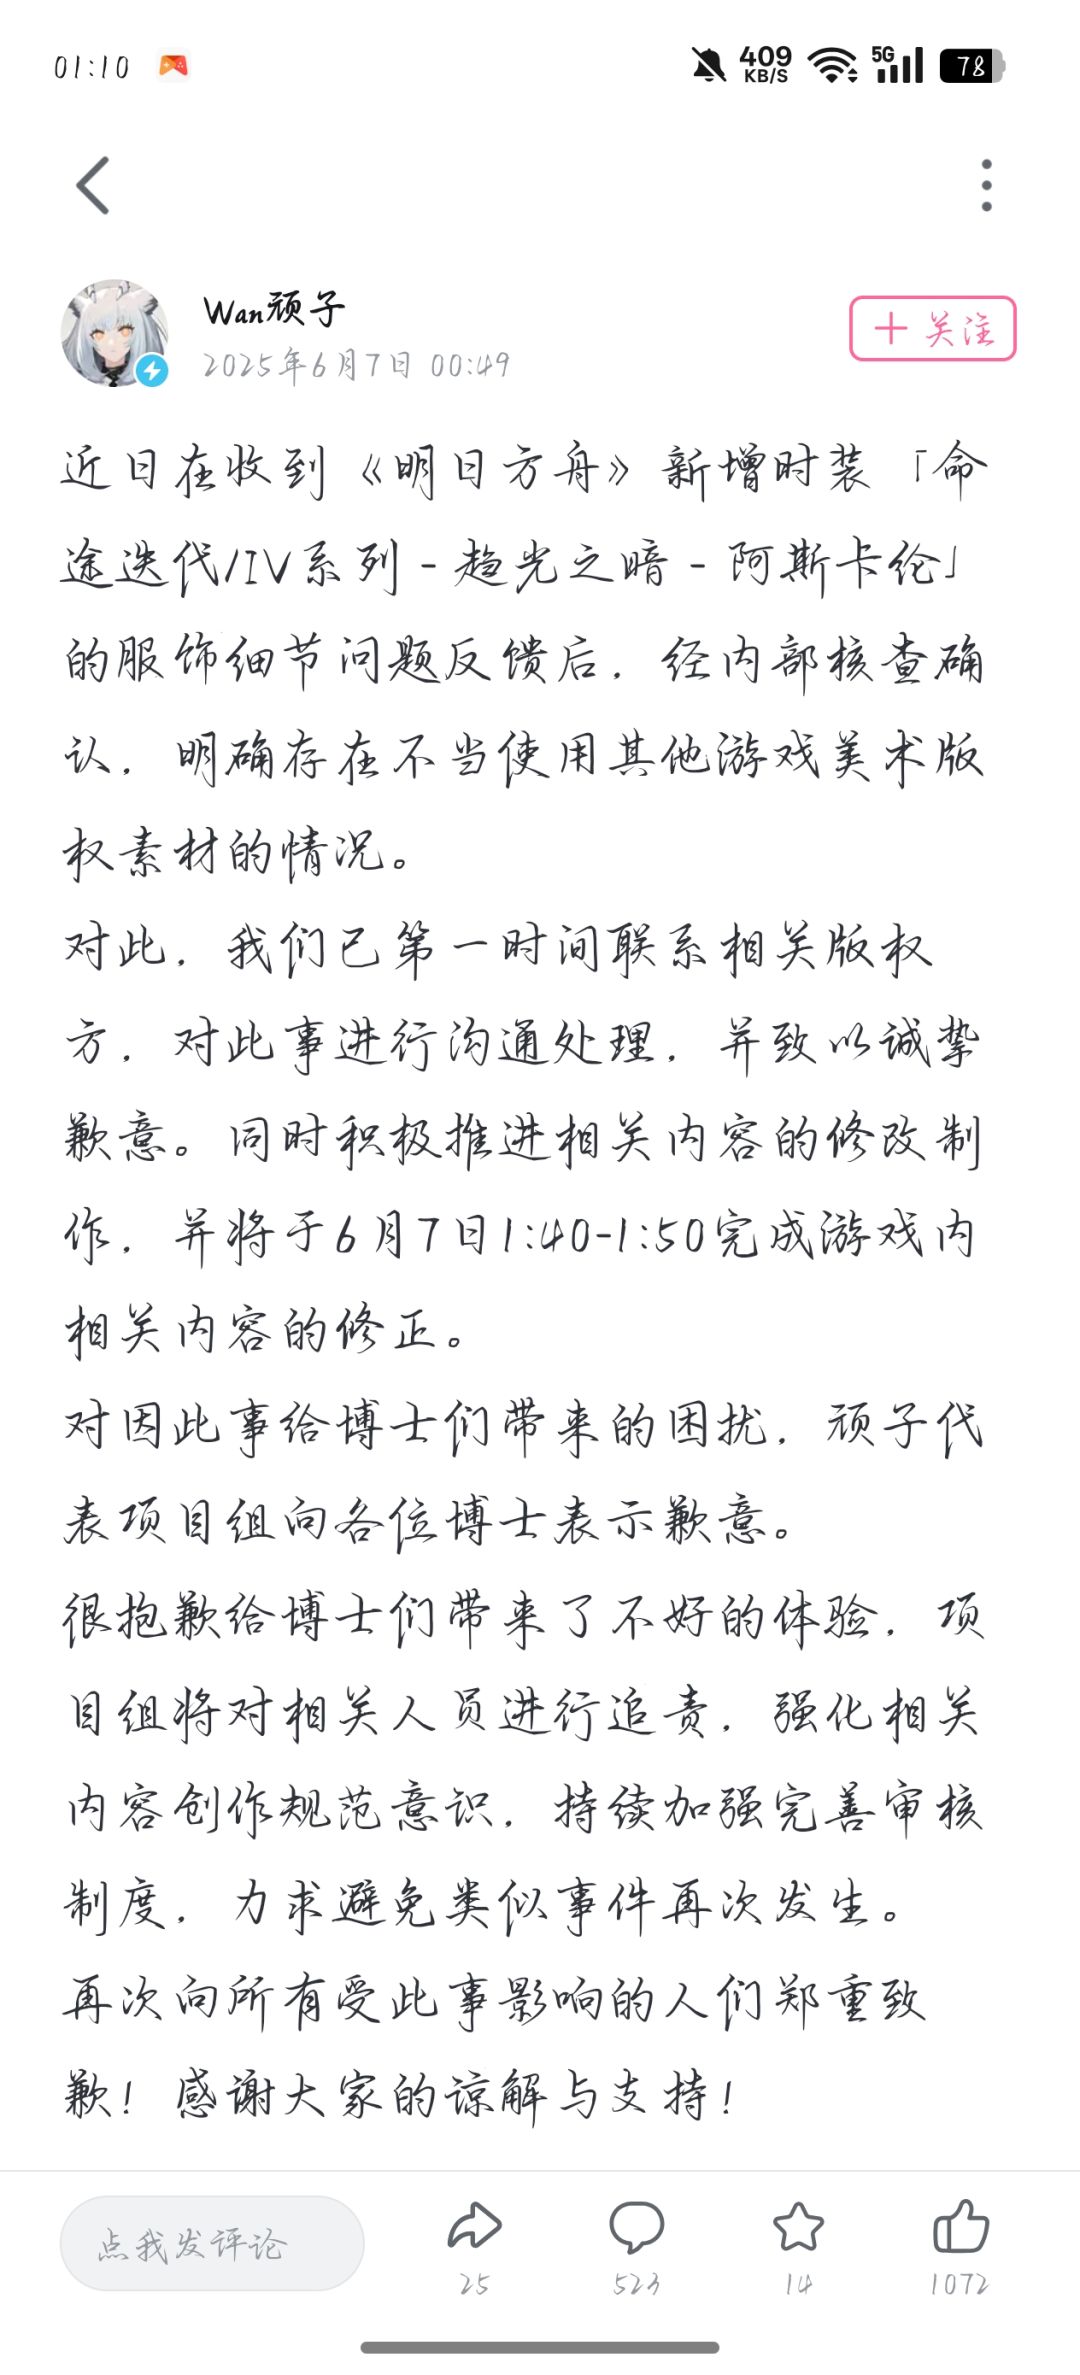 01:10
409
KB/S
5G
78
Wan顽子
2025年6月7日 00:49
+ 关注
近日在收到《明日方舟》新增时装「命
途迭代/IV系列 - 趋光之暗 - 阿斯卡纶」
的服饰细节问题反馈后，经内部核查确
认，明确存在不当使用其他游戏美术版
权素材的情况。
对此，我们已第一时间联系相关版权
方，对此事进行沟通处理，并致以诚挚
歉意。同时积极推进相关内容的修改制
作，并将于6月7日1:40-1:50完成游戏内
相关内容的修正。
对因此事给博士们带来的困扰，顽子代
表项目组向各位博士表示歉意。
很抱歉给博士们带来了不好的体验，项
目组将对相关人员进行追责，强化相关
内容创作规范意识，持续加强完善审核
制度，力求避免类似事件再次发生。
再次向所有受此事影响的人们郑重致
歉！感谢大家的谅解与支持！
点我发评论
25
523
14
1072